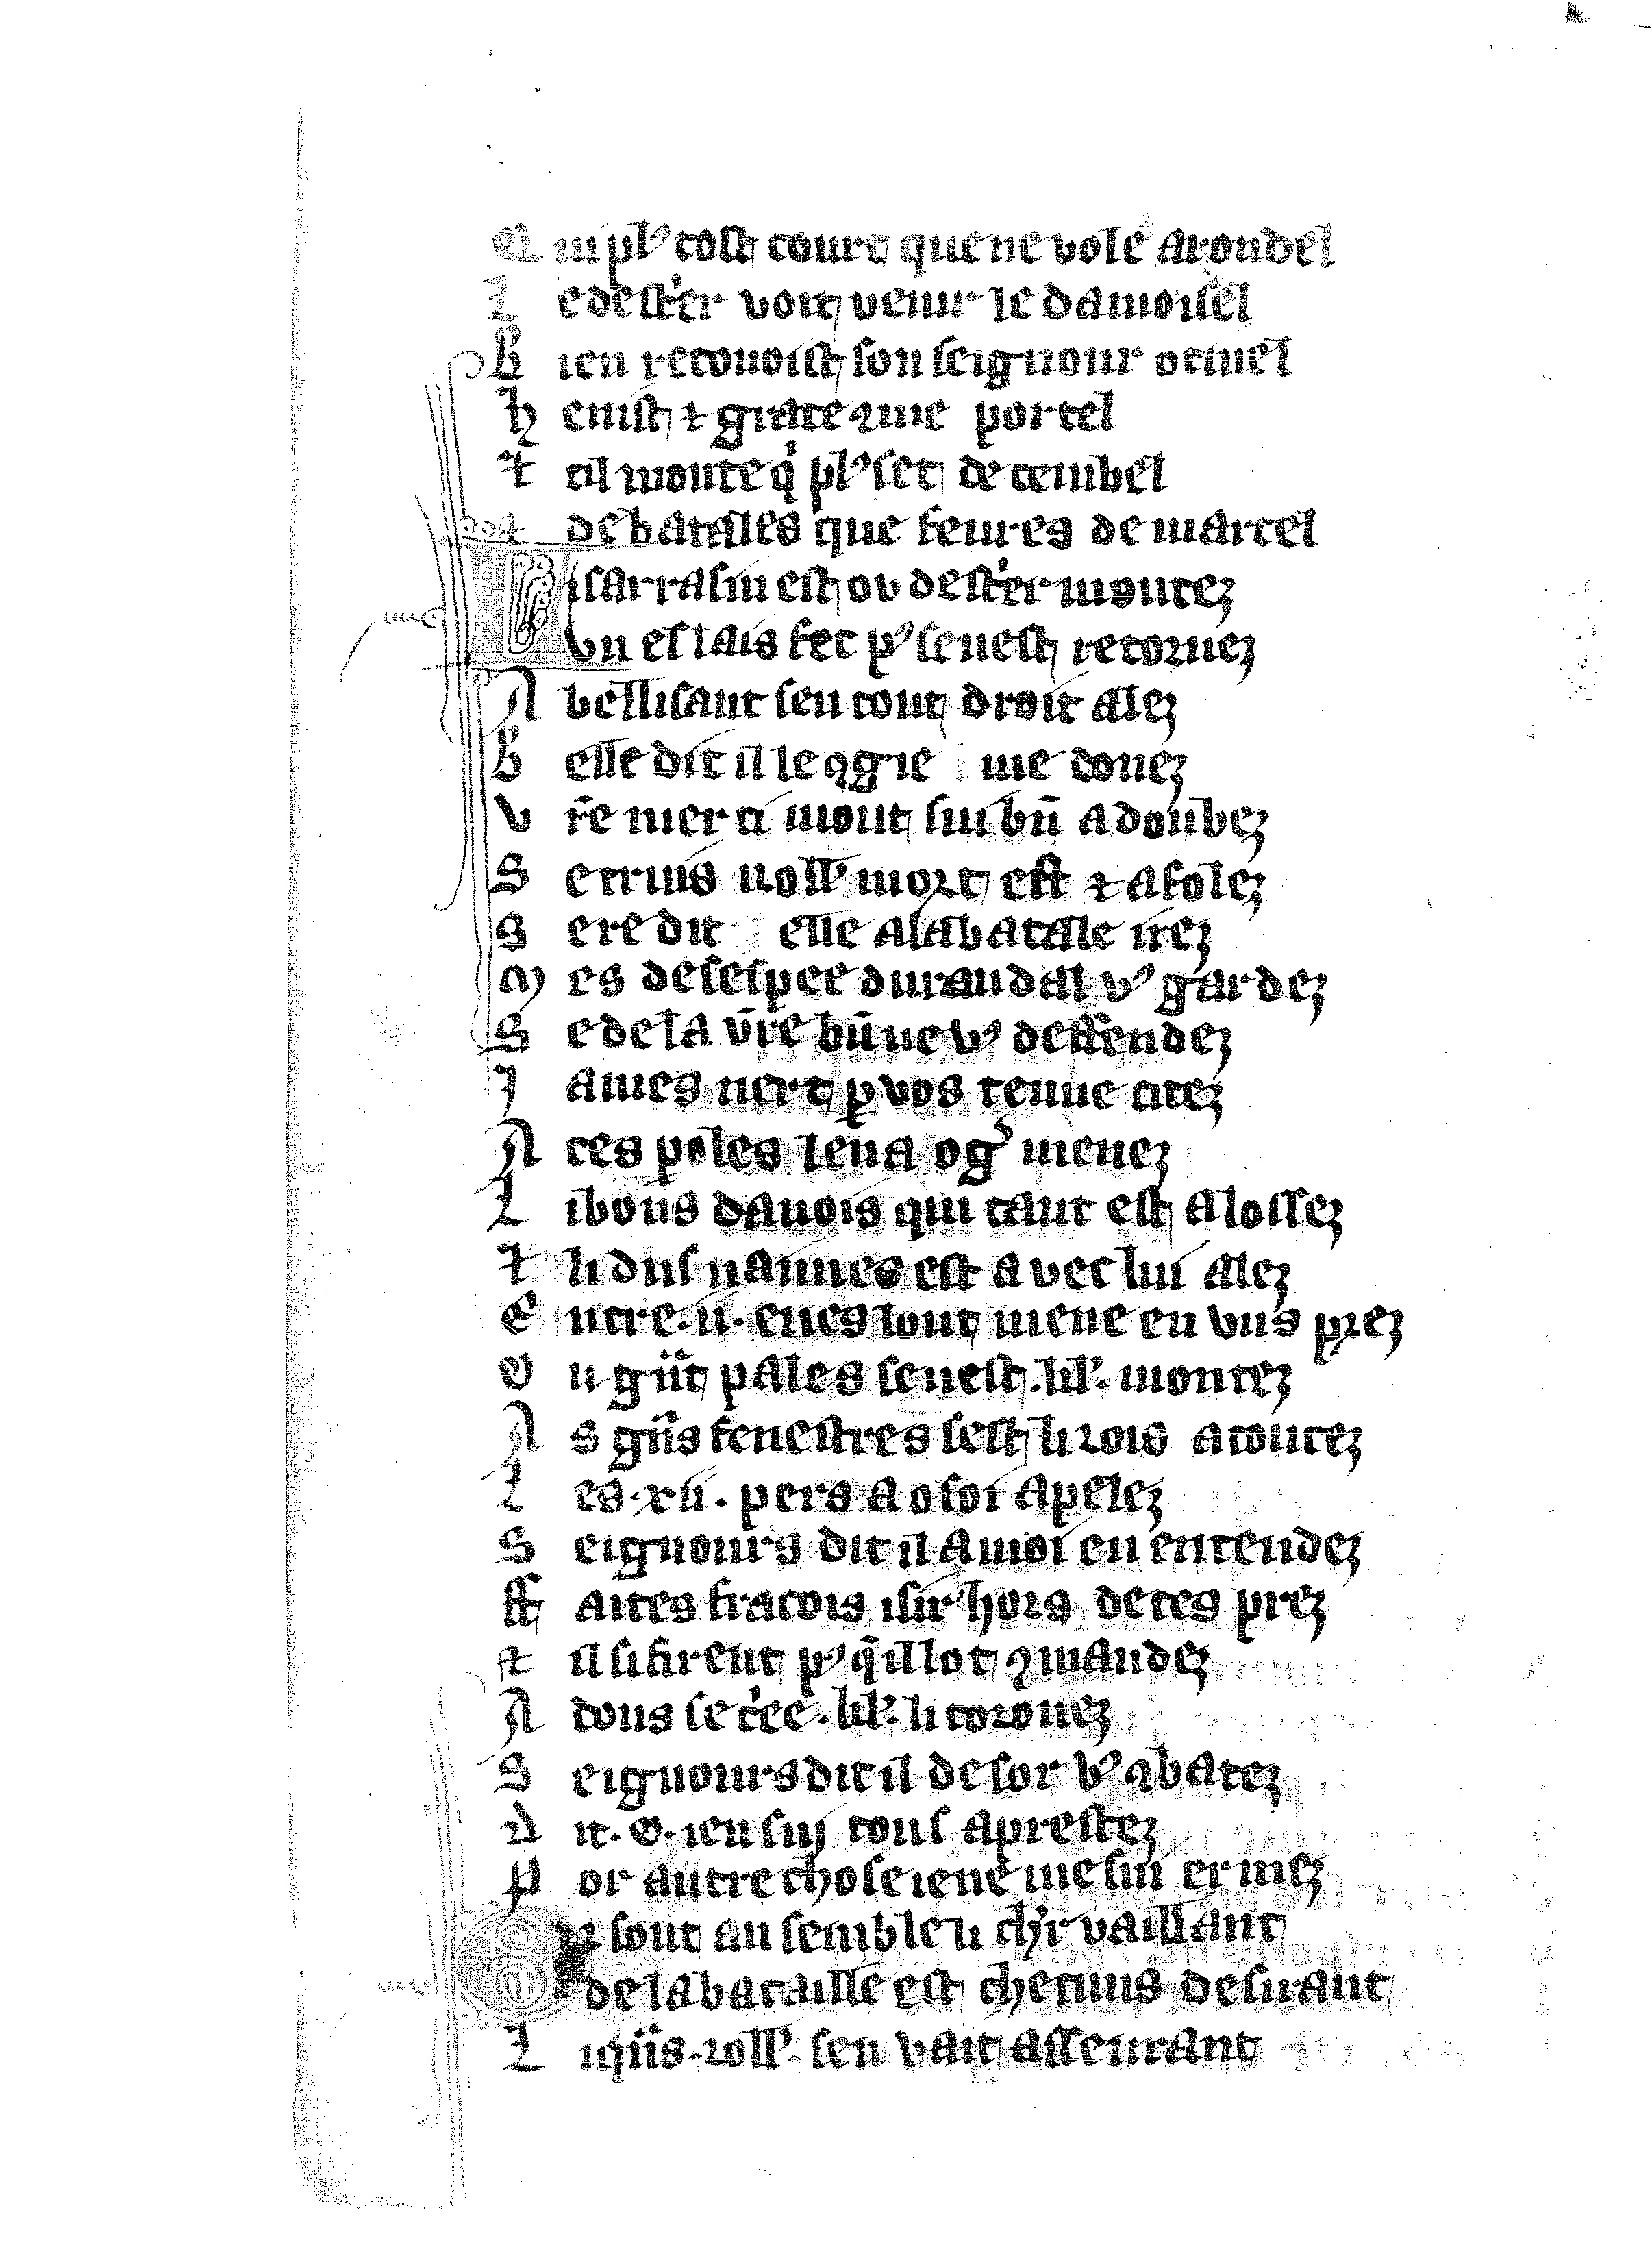 Q ui plꝰ tost court que ne vole arondel
L e dest'er voit venir le damoisel
B ien reconoist son seignour otinel
h enist ⁊ grate ꝯme portel
⁊ cil monte q̇ plꝰ set de cembel
⁊ de batalles que feures de martel
L i sarrasin est ou dest'er montez
vn eslais fet pꝰ s en est retornez
A bellisant s en tout droit alez
B elle dit il le ꝯgie me donez
V r̄e merci mout sui bn̄ adoubez
S e truis roll' mort est ⁊ afolez
S ere dit elle a la batalle irez
M es de s espee durandal vꝰ gardez
S e de la vr̄e bn̄ ne vꝰ deffendez
J ames n ert ꝑ vos tenue citez
A ces poles l en a og' menez
L i bons danois qui tant est alossez
⁊ li dus naimes est avec lui alez
E ntre .ii. eues l ont mene en vns prez
O u gn̄t pales s en est .kl'. montez
A s gn̄s fenestres s est li rois acoutez
L es .xii. pers a o soi apelez
S eignours dit il a moi en entendez
ff aites fracois isir hors de ces prez
⁊ il si firent pꝰ q̄ il l ot ꝯmandez
A dons s ec̓ee .kl'. li coronez
S eignours dit il desor vꝰ ꝯbatez
D it .O. ieu suj tous aprestez
P or autre chose ie ne me sui ermez
Or sont ansemble li ch'r vaillant
de la bataille est checuns desirant
L i qn̄s .roll'. s en vait asseurant